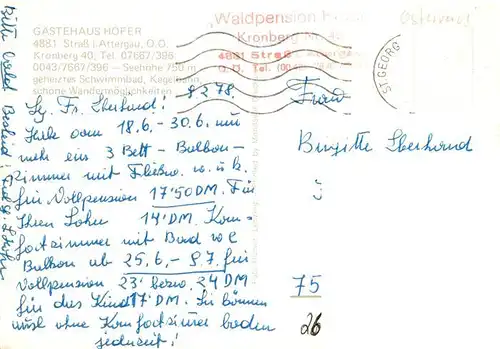 GÄSTEHAUS HÖFER
4881 Straß i. Attergau, O.Ö.
Kronberg 40, Tel. 07667/396
0043/7667/396 — Seehöhe 750 m
geheiztes Schwimmbad, Kegelbahn,
schöne Wandermöglichkeiten
Waldpension
Kronberg
4881 Straß
O.Ö. Tel.
Österreich
ST. GEORG
9.2.78.
Sg. Fr. Eberhard!
Habe vom 18.6.-30.6. nur
mehr ein 3 Bett-Balkon-
zimmer mit Fließw. w. u. k.
für Vollpension 17'50 DM. Für
Ihren Sohn 14' DM. Kom-
fortzimmer mit Bad WC
Balkon ab 25.6.-9.7. für
Vollpension 23' bezw. 24 DM
für das Kind 17' DM. Sie können
auch ohne Komfortzimer baden
jederzeit!
Bitte bald Bescheid!
Frau
Brigitte Eberhard
75
26